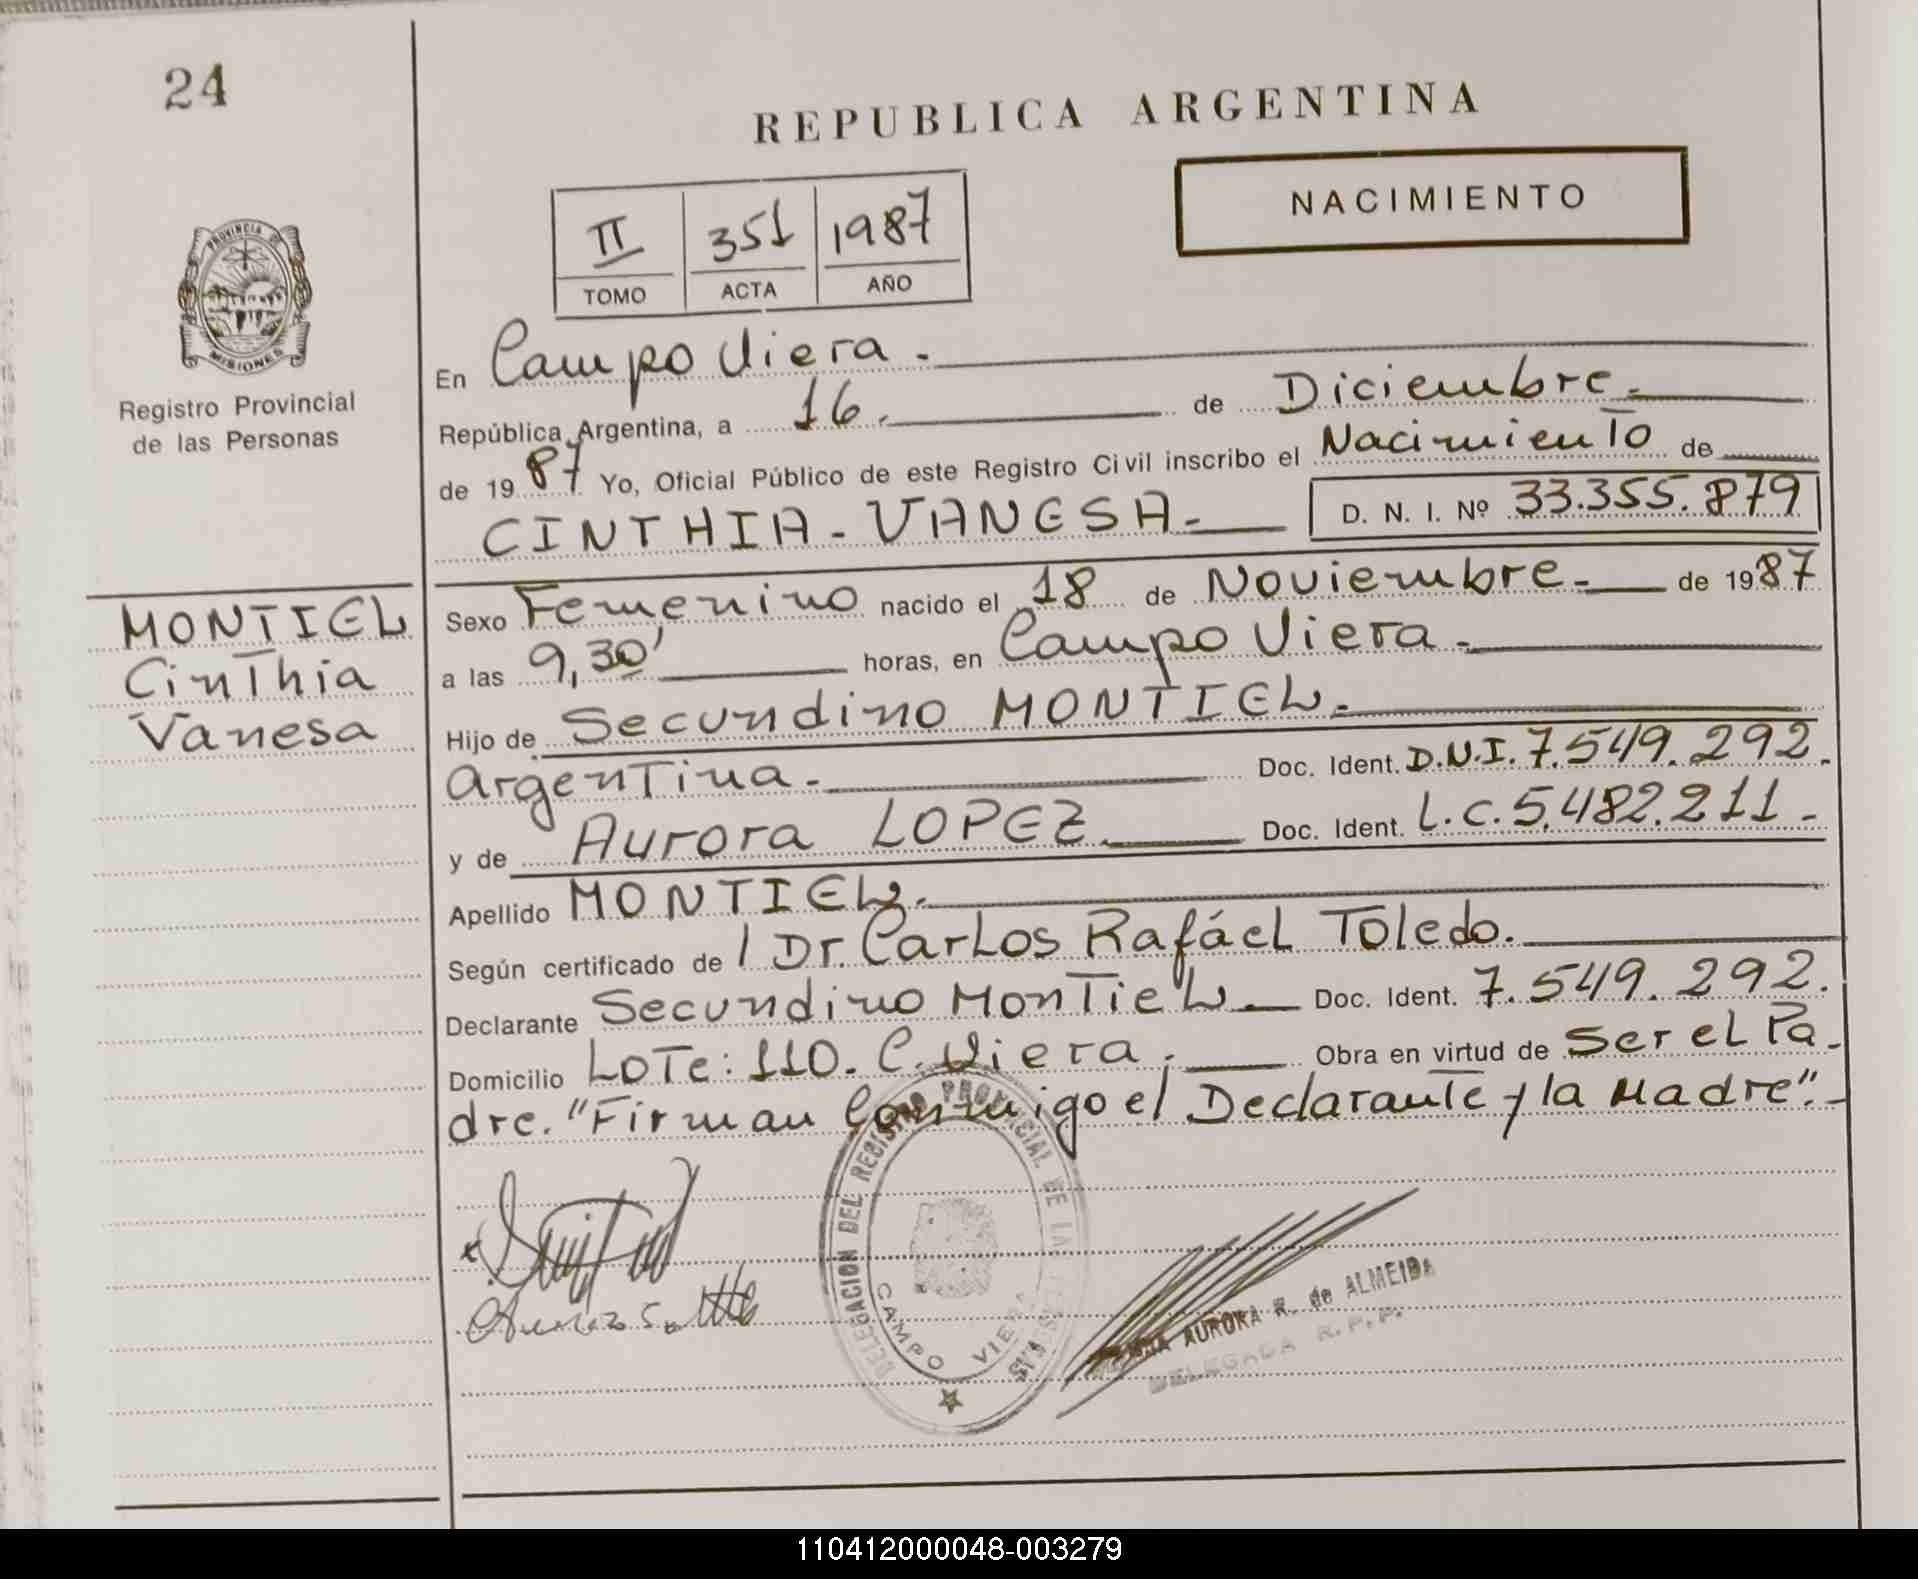 24
REPUBLICA ARGENTINA
NACIMIENTO
II 351 1987
TOMO ACTA AÑO
PROVINCIA DE
MISIONES
Registro Provincial
de las Personas
En Campo Viera.
República Argentina, a 16. de Diciembre.
de 1987 Yo, Oficial Público de este Registro Civil inscribo el Nacimiento de
CINTHIA - VANESA - D. N. I. Nº 33.355.879
MONTIEL
Cinthia
Vanesa
Sexo Femenino nacido el 18 de Noviembre. de 1987
a las 9,30' horas, en Campo Viera.
Hijo de Secundino MONTIEL.
Argentina. Doc. Ident. D.N.I. 7.549.292.
y de Aurora LOPEZ. Doc. Ident. L.C. 5.482.211.-
Apellido MONTIEL.
Según certificado de l Dr. Carlos Rafáel Toledo.
Declarante Secundino Montiel. Doc. Ident. 7.549.292.
Domicilio Lote: 110. C. Viera. Obra en virtud de Ser el Pa-
dre. "Firman Conmigo el Declarante y la Madre".-
DELEGACION DEL REGISTRO PROVINCIAL DE LAS
CAMPO VIERA
AURORA R. de ALMEIDA
DELEGADA R.P.P.
110412000048-003279